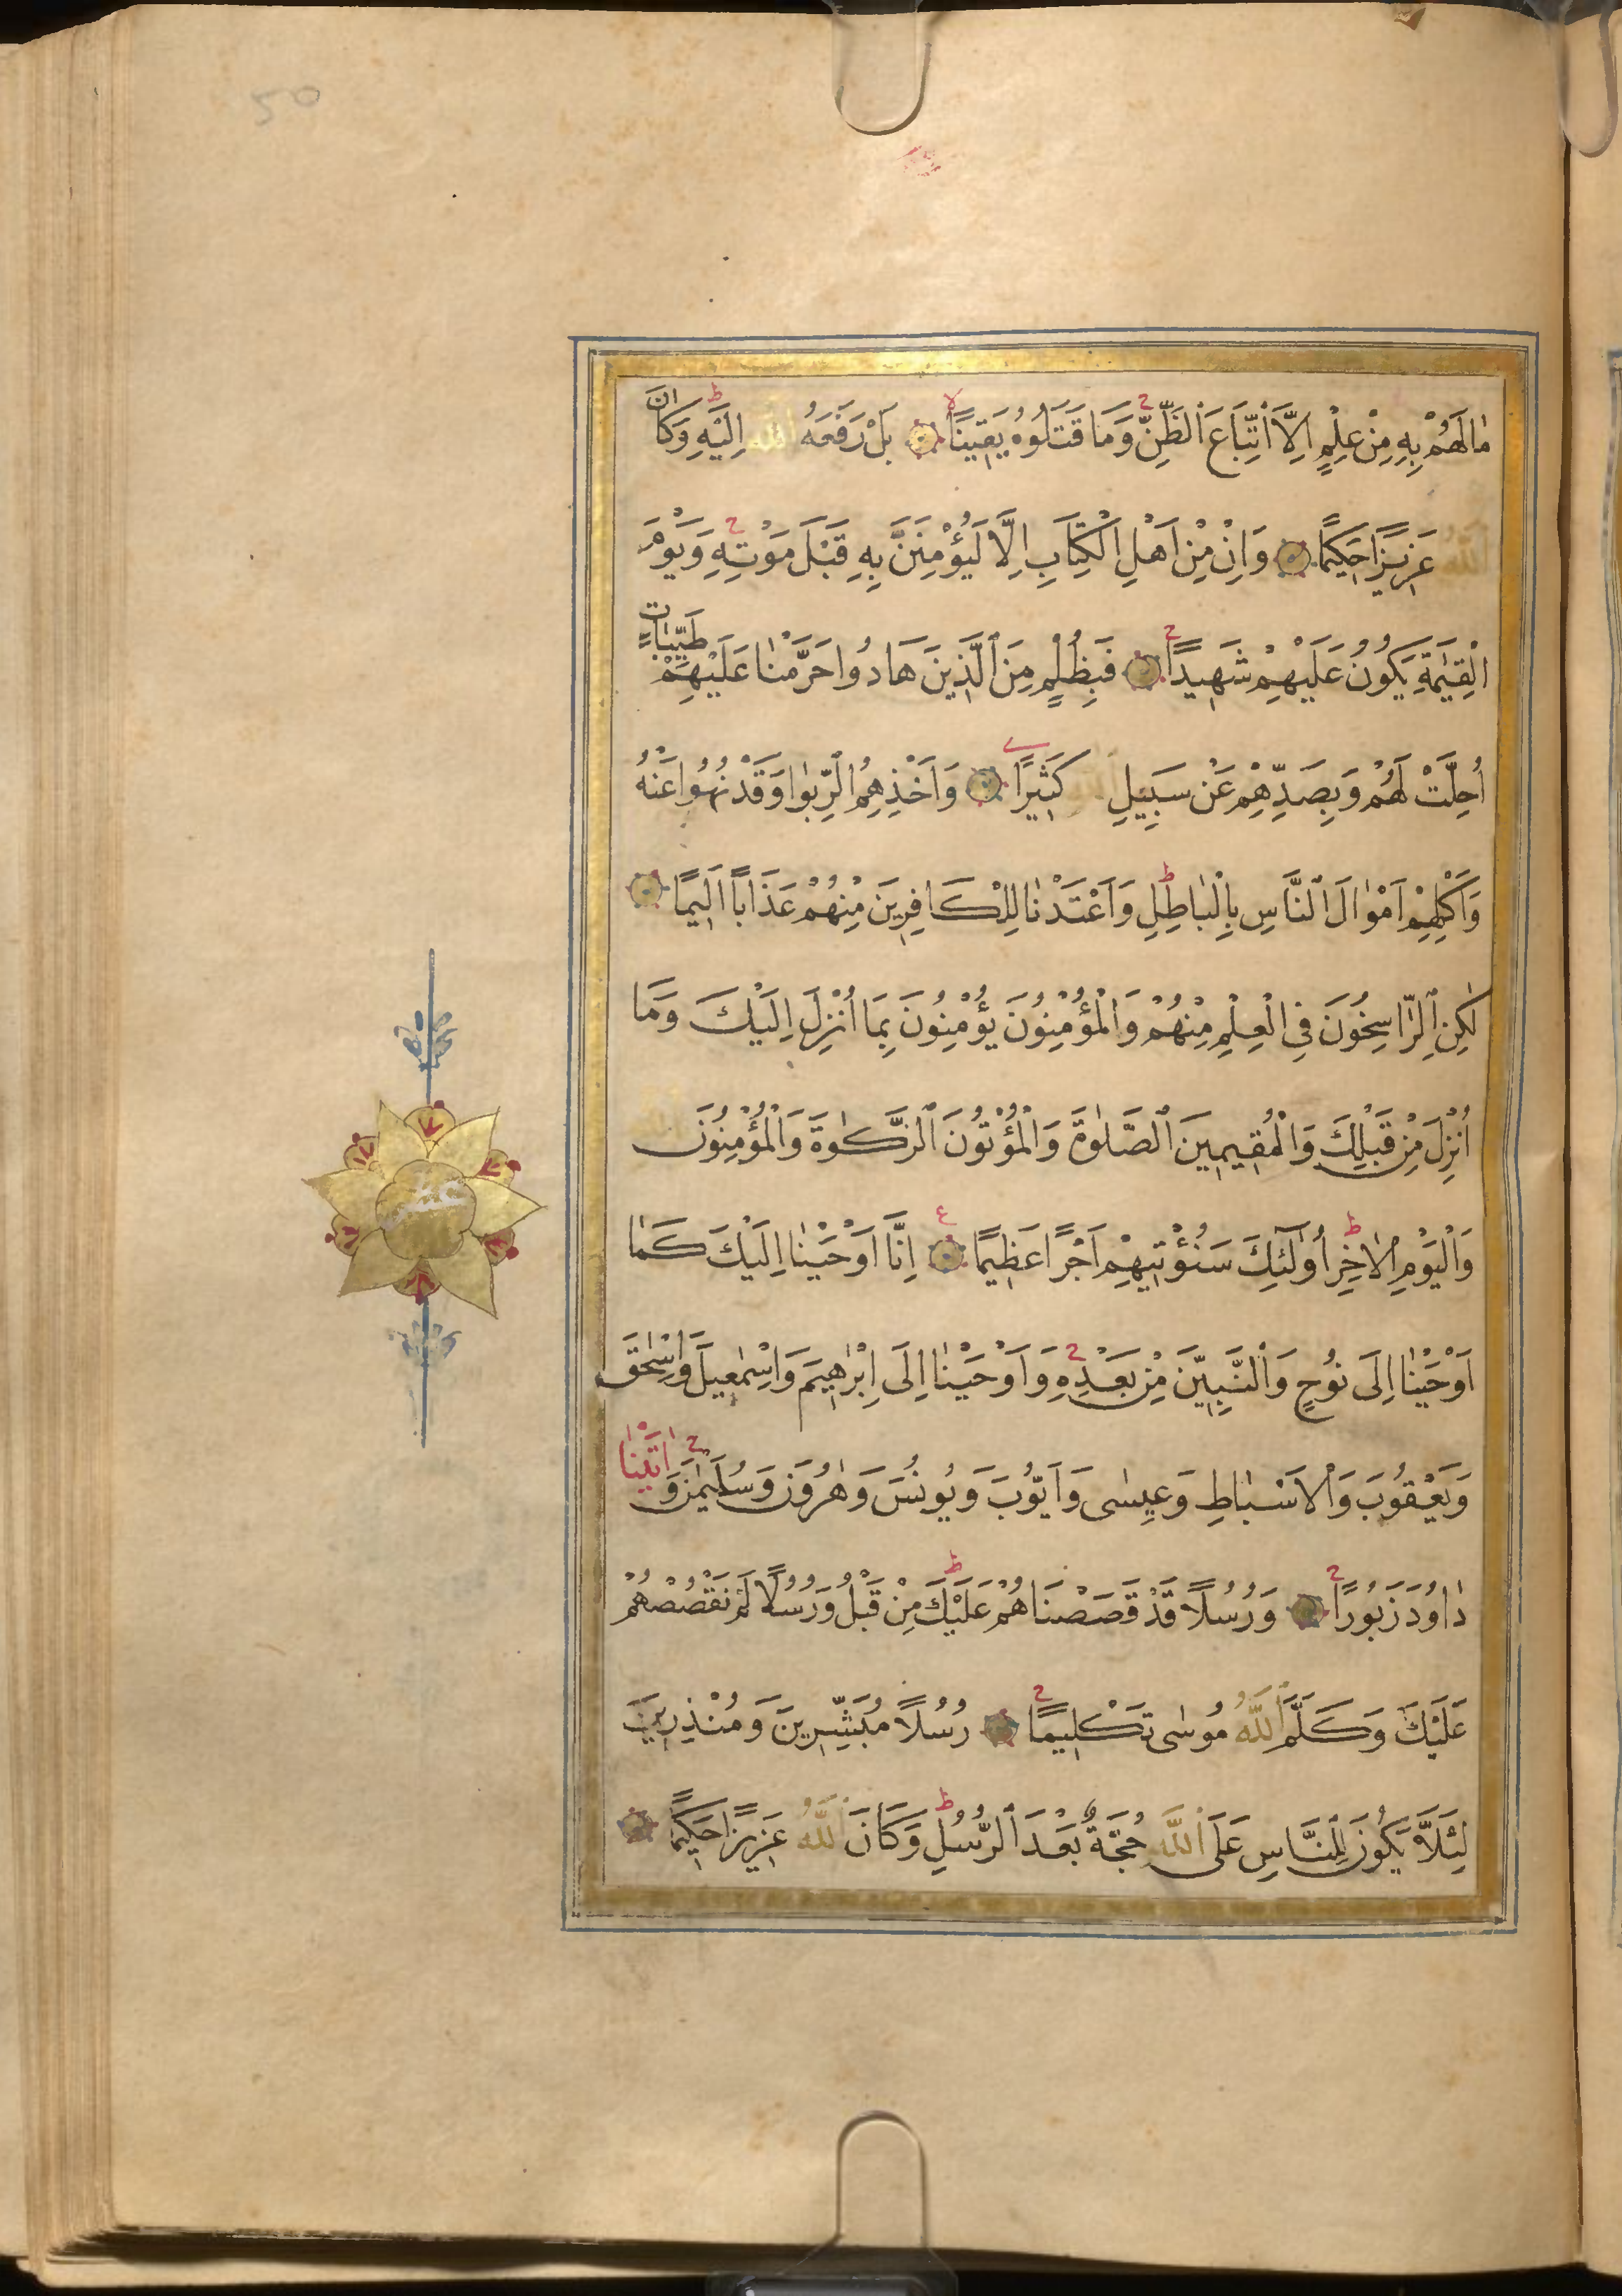 مٰا لَهُمْ بِهِ مِنْ عِلْمٍ اِلَّا اتِّبَاعَ الظَّنِّ وَمَا قَتَلُوهُ يَقِينًا بَلْ رَفَعَهُ اللّٰهُ اِلَيْهِ وَكَانَ
اللّٰهُ عَزِيزًا حَكِيمًا وَاِنْ مِنْ اَهْلِ الْكِتَابِ اِلَّا لَيُؤْمِنَنَّ بِهِ قَبْلَ مَوْتِهِ وَيَوْمَ
الْقِيٰمَةِ يَكُونُ عَلَيْهِمْ شَهِيدًا فَبِظُلْمٍ مِنَ الَّذِينَ هَادُوا حَرَّمْنٰا عَلَيْهِمْ طَيِّبَاتٍ
اُحِلَّتْ لَهُمْ وَبِصَدِّهِمْ عَنْ سَبِيلِ كَثِيرًا وَاَخْذِهِمُ الرِّبٰوا وَقَدْ نُهُوا عَنْهُ
وَاَكْلِهِمْ اَمْوٰالَ النَّاسِ بِالْبٰاطِلِ وَاَعْتَدْنٰا لِلْكَافِرِينَ مِنْهُمْ عَذَابًا اَلِيمًا
لٰكِنِ الرَّاسِخُونَ فِى الْعِلْمِ مِنْهُمْ وَالْمُؤْمِنُونَ يُؤْمِنُونَ بِمَا اُنْزِلَ اِلَيْكَ وَمَا
اُنْزِلَ مِنْ قَبْلِكَ وَالْمُقِيمِينَ الصَّلٰوةَ وَالْمُؤْتُونَ الزَّكٰوةَ وَالْمُؤْمِنُونَ
وَالْيَوْمِ الْاٰخِرِ اُولٰئِكَ سَنُؤْتِيهِمْ اَجْرًا عَظِيمًا اِنَّا اَوْحَيْنٰا اِلَيْكَ كَمٰا
اَوْحَيْنٰا اِلَى نُوحٍ وَالنَّبِيِّينَ مِنْ بَعْدِهِ وَاَوْحَيْنٰا اِلَى اِبْرٰاهِيمَ وَاِسْمٰعِيلَ وَاِسْحٰقَ
وَيَعْقُوبَ وَالْاَسْبٰاطِ وَعِيسٰى وَاَيُّوبَ وَيُونُسَ وَهٰرُونَ وَسُلَيْمٰنَ وَاٰتَيْنٰا
دٰاوُدَ زَبُورًا وَرُسُلًا قَدْ قَصَصْنَاهُمْ عَلَيْكَ مِنْ قَبْلُ وَرُسُلًا لَمْ نَقْصُصْهُمْ
عَلَيْكَ وَكَلَّمَ اللّٰهُ مُوسٰى تَكْلِيمًا رُسُلًا مُبَشِّرِينَ وَمُنْذِرِينَ
لِئَلَّا يَكُونَ لِلنَّاسِ عَلَى اللّٰهِ حُجَّةٌ بَعْدَ الرُّسُلِ وَكَانَ اللّٰهُ عَزِيزًا حَكِيمًا